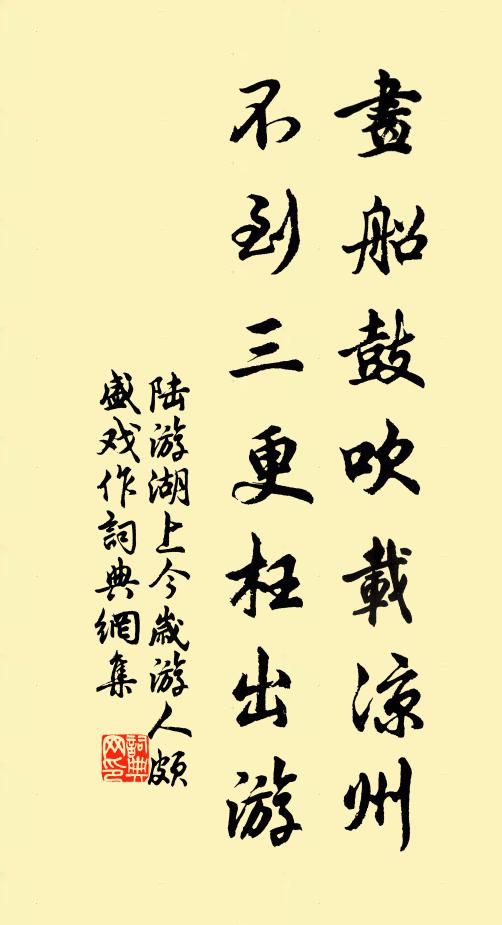 畫船鼓吹載涼州
不到三更枉出游
陆游湖上今歲游人頗
盛戏作詞典網集
詞典
网印